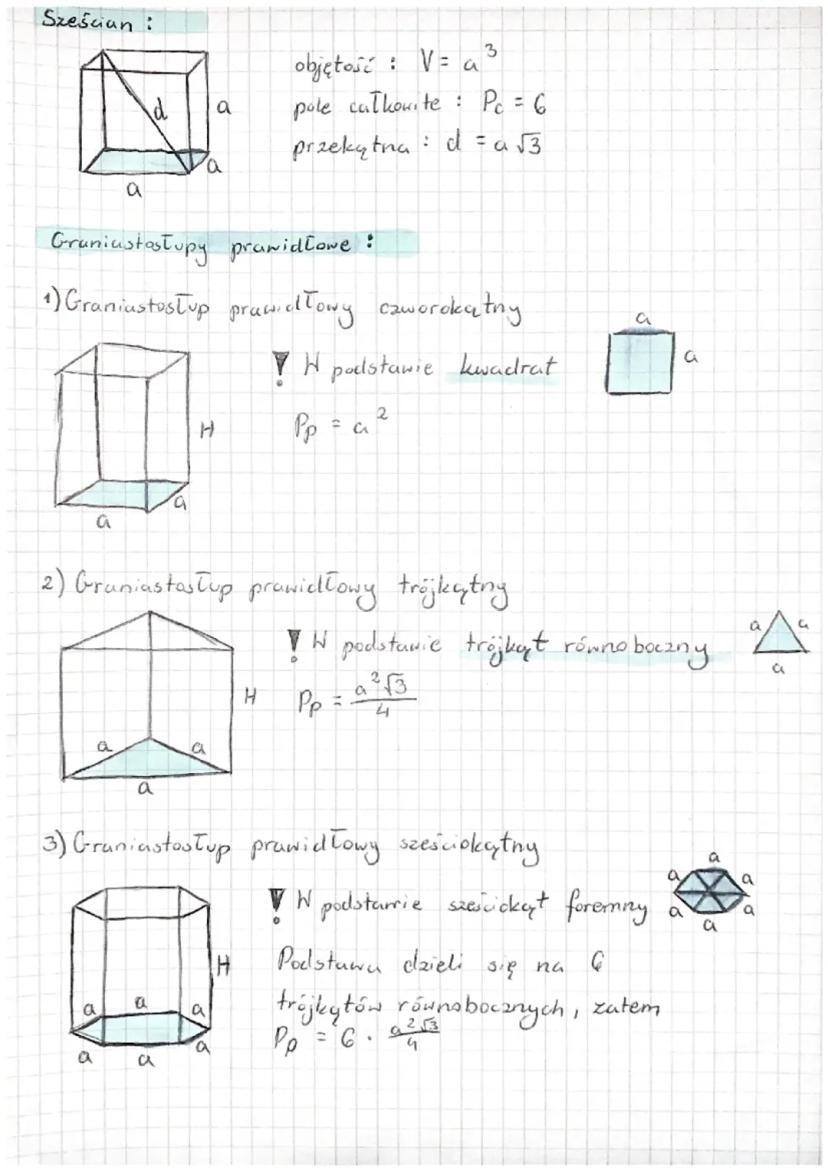 Sześcian :
objętość : V = a³
pole całkowite : Pc = 6
przekątna : d = a √3
d
a
a
a
Graniastosłupy prawidłowe :
1) Graniastosłup prawidłowy czworokątny
! W podstawie kwadrat
Pp = a²
a
a
H
a
a
2) Graniastosłup prawidłowy trójkątny
! W podstawie trójkąt równoboczny
Pp = a²√3/4
a
a
a
H
a
a
a
3) Graniastosłup prawidłowy sześciokątny
! W podstawie sześciokąt foremny
Podstawa dzieli się na 6
trójkątów równobocznych, zatem
Pp = 6 · a²√3/4
a
a
a
a
a
a
H
a
a
a
a
a
a